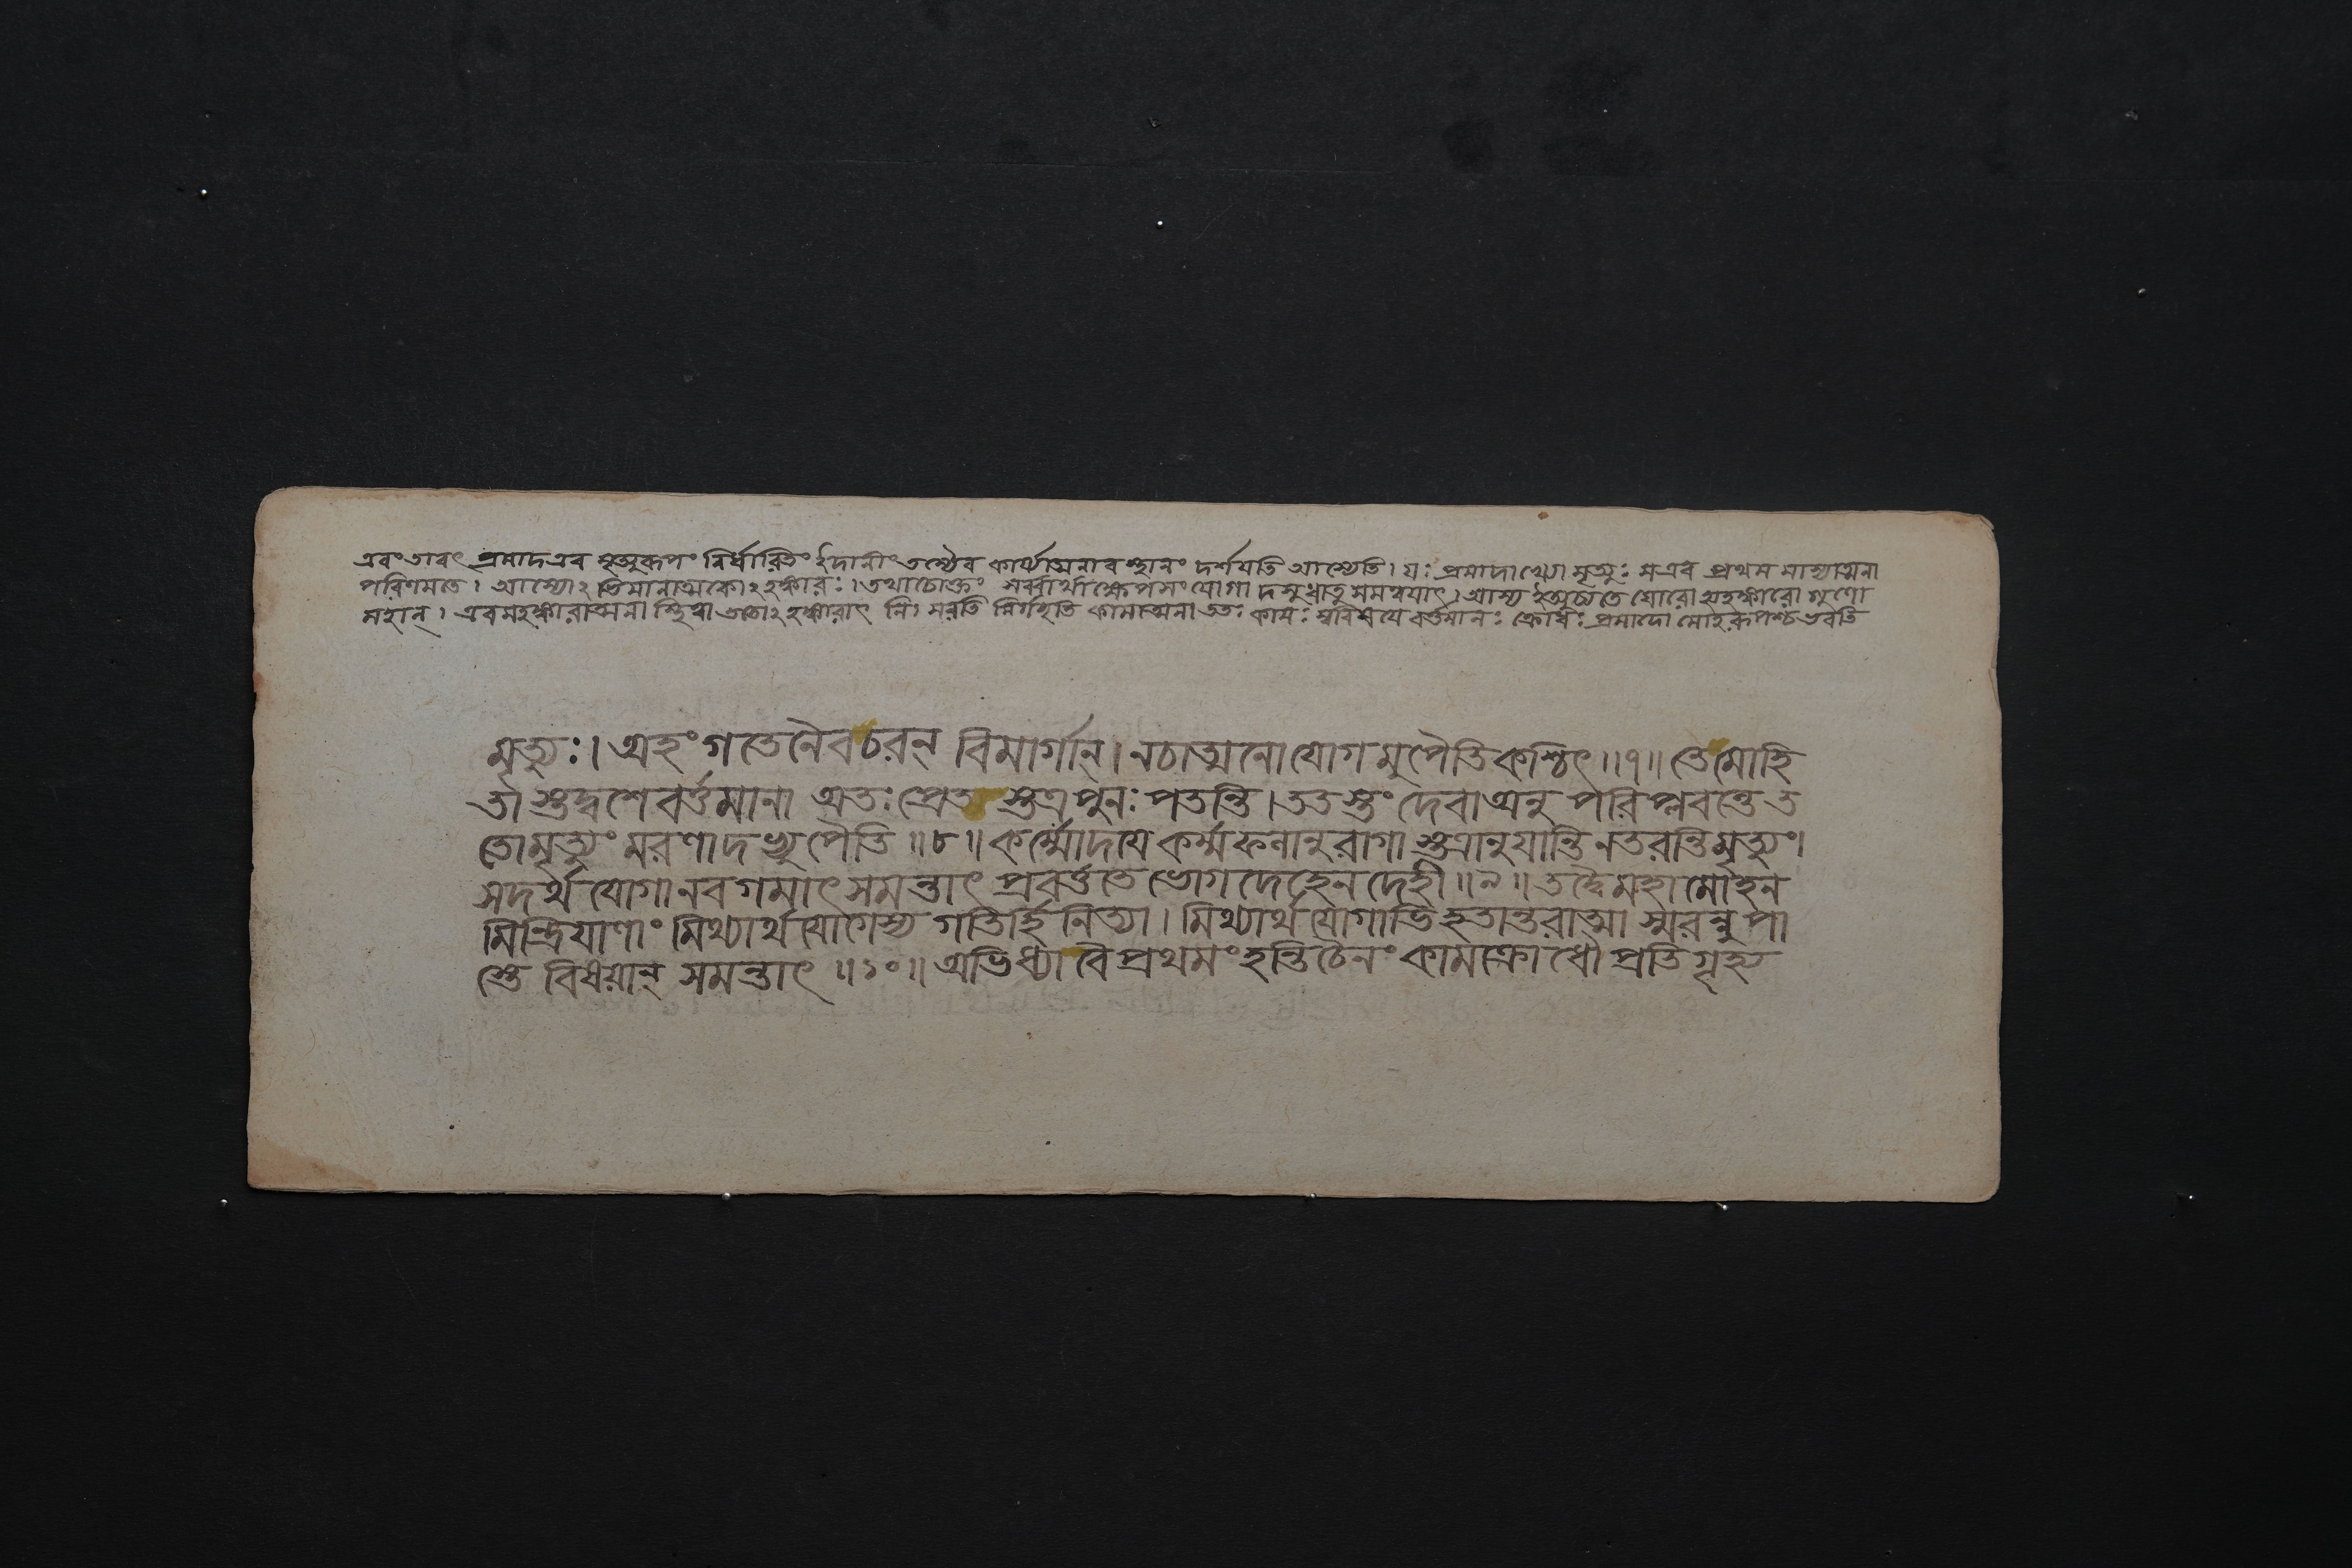 এবং তাবৎ প্রমাদ এব মৃত্যুরূপং নির্ধারিতং ইদানীং তস্যৈব কার্য্যাত্মনাবস্থানং দর্শয়তি আস্যেতি । যঃ প্রমাদাখ্যো মৃত্যুঃ স এব প্রথম মাস্যাত্মনা
পরিণমতে । আস্যোঽভিমানাত্মকোঽহঙ্কারঃ । তথাচোক্তং সর্ব্বার্থাক্ষেপসংযোগাদসুধাতুসমন্বয়াৎ । আস্য ইত্যুচ্যতে ঘোরো হ্যহঙ্কারো গুণো
মহান্ । এবমহঙ্কারাত্মনা স্থিত্বা ততোঽহঙ্কারাৎ নিঃসরতি নির্গচ্ছতি কামাত্মনা ততঃ কামঃ স্ববিষয়ে বর্ত্তমানঃ ক্রোধঃ প্রমাদো মোহরূপশ্চ ভবতি
মৃত্যুঃ । অহং গতেনৈব চরন্ বিমার্গান্ । ন চাত্মনো যোগমুপৈতি কশ্চিৎ ॥ ৭ ॥ তে মোহি
তাস্তদ্বশে বর্ত্তমানা অতঃ প্রেতাস্তত্র পুনঃ পতন্তি । ততস্তং দেবা অনু পরিপ্লবন্তে ত
তো মৃত্যুং মরণাদভ্যুপৈতি ॥ ৮ ॥ কর্ম্মোদয়ে কর্ম্মফলানুরাগাস্তত্রানুযান্তি ন তরন্তি মৃত্যুং ।
সদর্থযোগানবগমাৎ সমন্তাৎ প্রবর্ত্ততে ভোগদেহেন দেহী ॥ ৯ ॥ তদ্বৈ মহামোহন
মিন্দ্রিয়াণাং মিথ্যার্থযোগেস্য গতির্হি নিত্যা । মিথ্যার্থযোগাভিহতান্তরাত্মা স্মরন্নুপা
স্তে বিষয়ান্ সমন্তাৎ ॥ ১০ ॥ অভিধ্যা বৈ প্রথমং হন্তি চৈনং কামক্রোধৌ প্রতিগৃহ্য